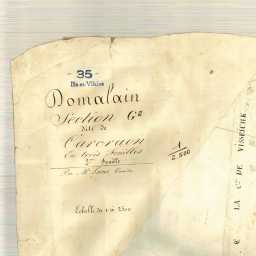 - 35 -
Ille-et-Vilaine
Domalain
Section G²
dite de
Carcraon
En trois feuilles
2ᵉ feuille
Par Mr
1
2.500
Echelle de 1 à 2500
LA Cne DE VISSEICHE